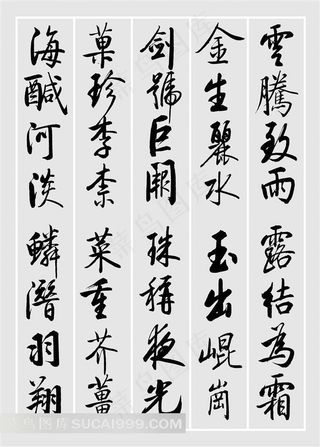 雲騰致雨 露結為霜
金生麗水 玉出崐崗
劍號巨闕 珠稱夜光
菓珍李柰 菜重芥薑
海醎河淡 鱗潛羽翔
菜鸟图库 SUCAI999.COM